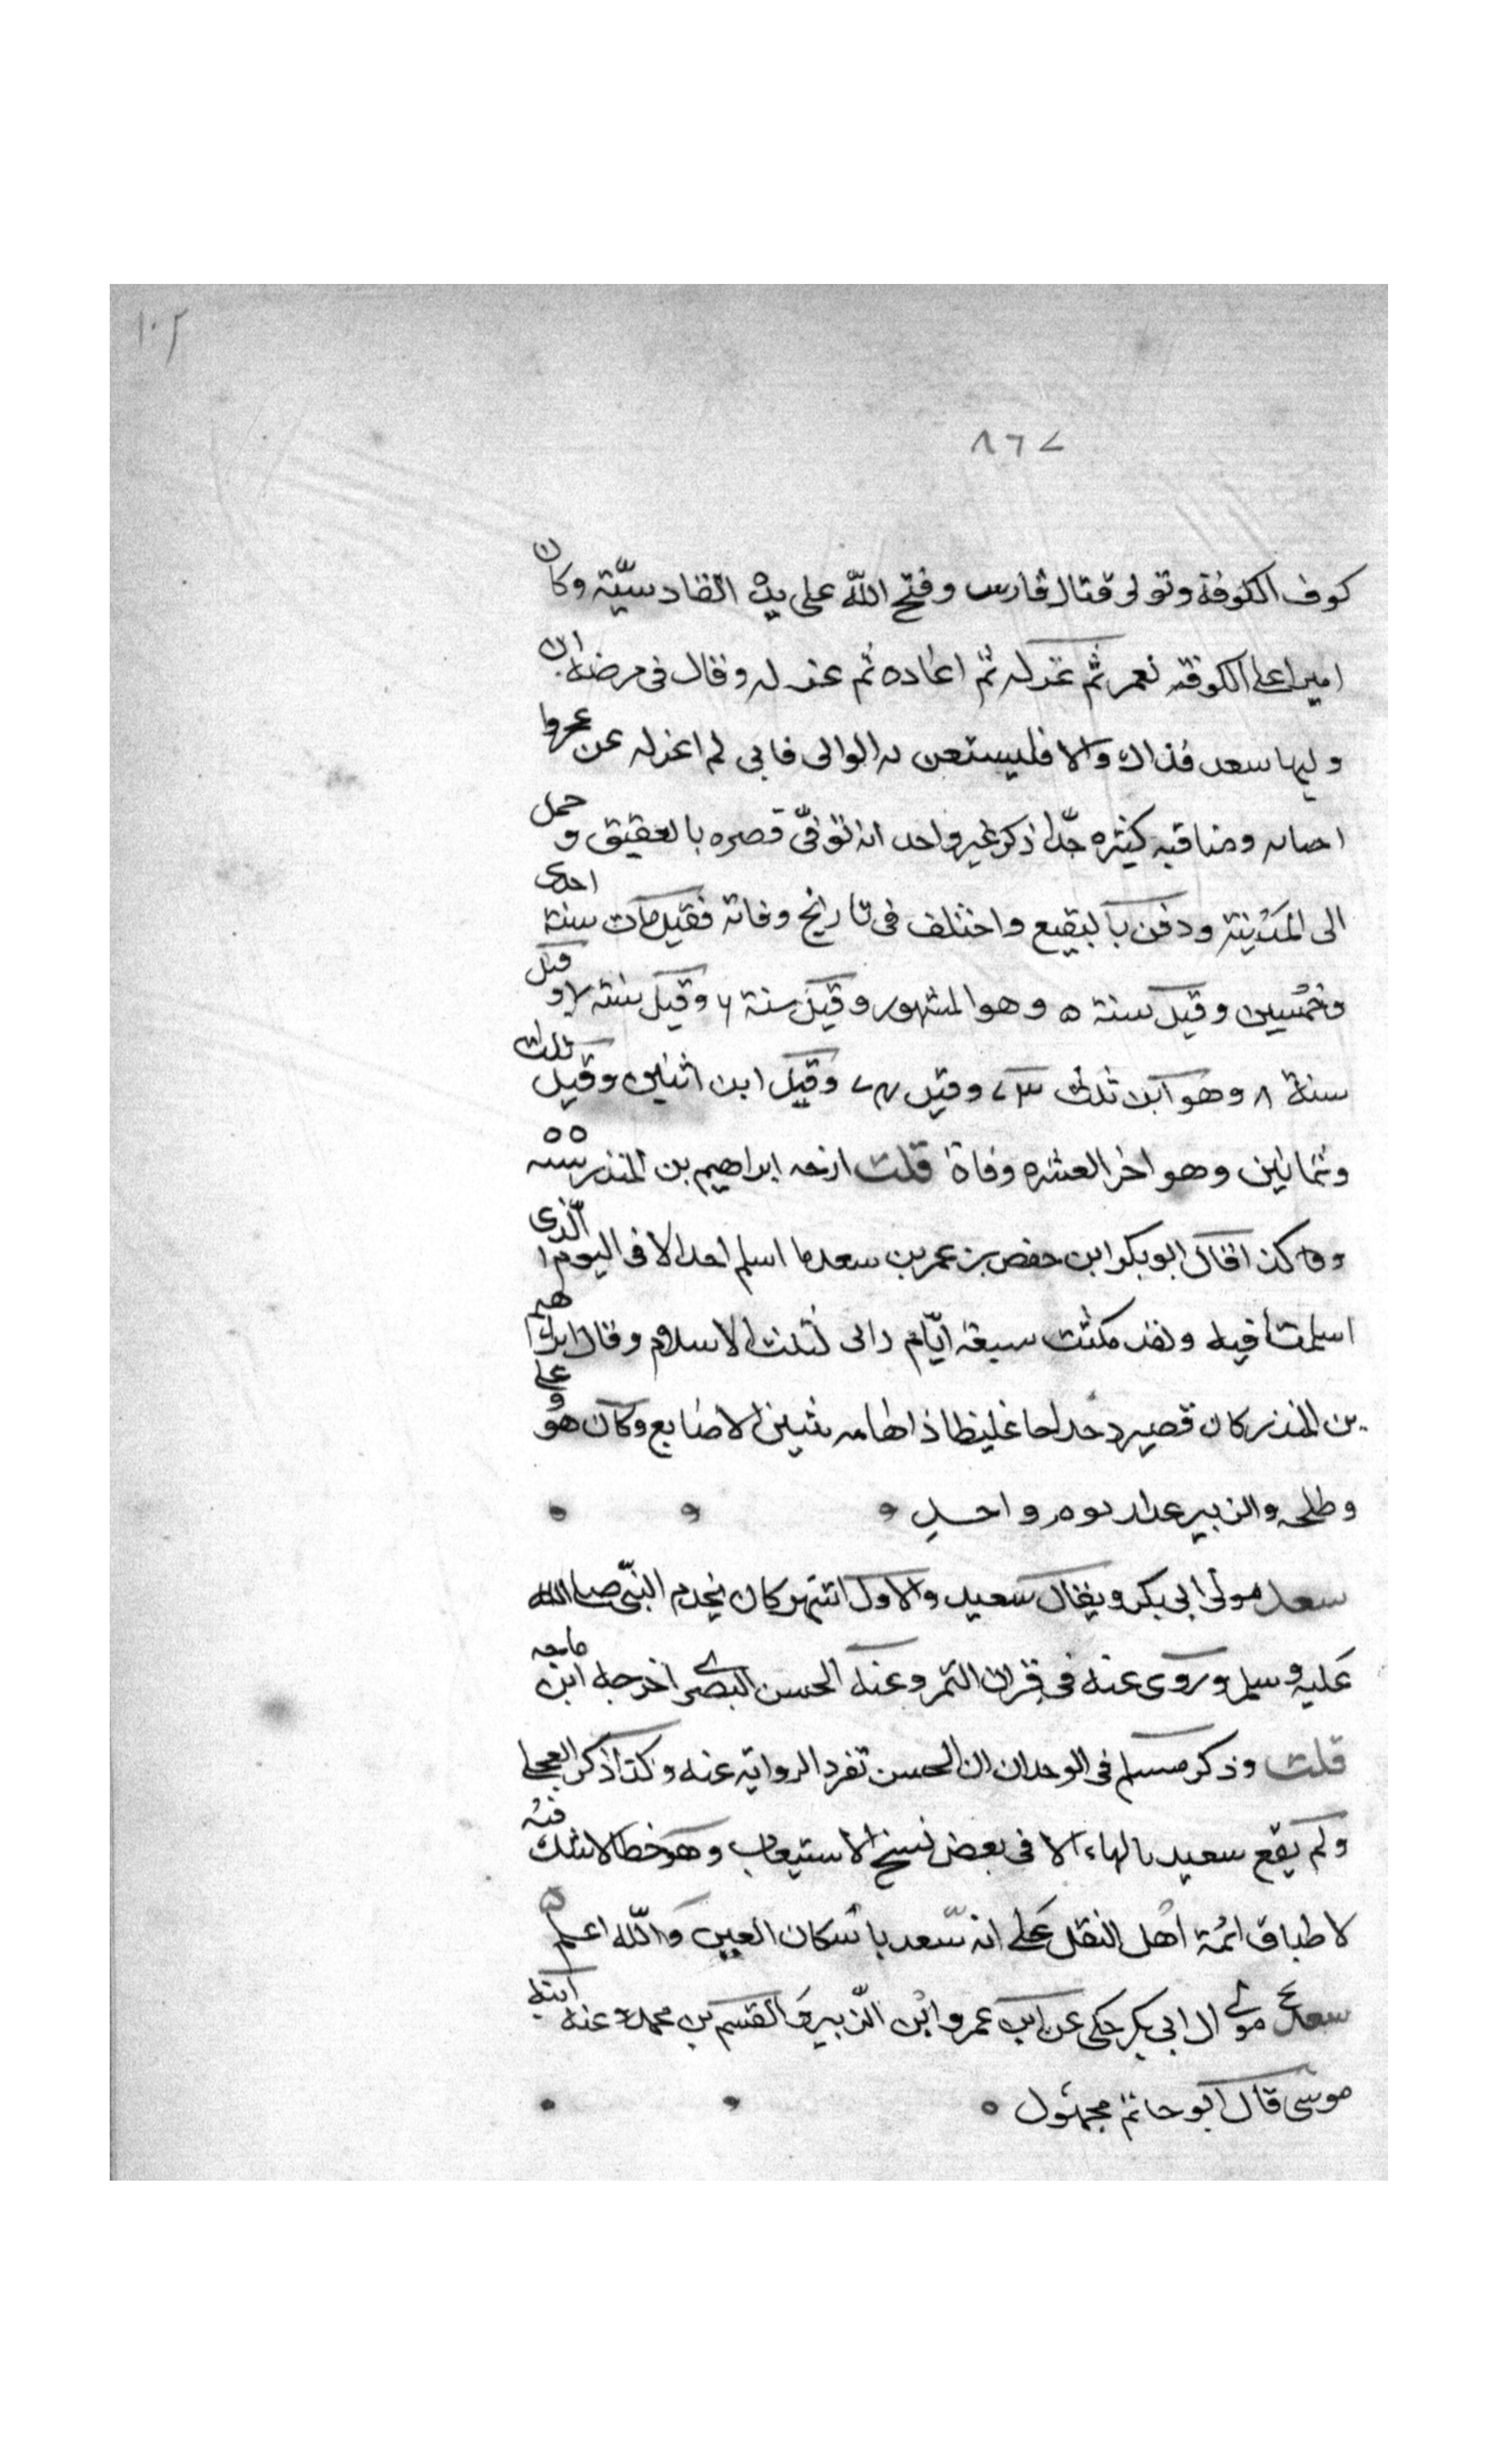 ١٠٢
٨٦٧
كوف الكوفة وتولى قتال فارس وفتح الله على يده القادسيّة وكان
اميرا على الكوفة لعمر ثم عزله ثم اعاده ثم عزله وقال فى مرضه ان
وليها سعد فذاك والا فليستعن به الوالى فانى لم اعزله عن
ومناقبه كثيره جدّا ذكر غير واحد انه توفى قصره بالعقيق وحمل
الى المدينة ودفن بالبقيع واختلف فى تاريخ وفاته فقيل مات سنة احدى
وخمسين وقيل سنة ٥ وهو المشهور وقيل سنة ٦ وقيل سنة ٧ وقيل
سنة ٨ وهو ابن ثلث ٧٣ وقيل ٧٤ وقيل ابن اثنين وقيل ثلث
وثمانين وهو اخر العشره وفاة قلت ارخه ابراهيم بن المنذر سنة ٥٥
وهكذا قال ابو بكر ابن حفص بن عمر بن سعد ما اسلم احد الا فى اليوم الّذى
اسلمت فيه ولقد مكثت سبعة ايّام وانى لثلث الاسلام وقال ابراهيم
بن المنذر كان قصيرا دحداحا غليظا ذا هامه شثين الاصابع وكان هو وعلى
وطلحه والزبير عذار يوم واحد
سعد مولى ابى بكر ويقال سعيد والاول اشهر كان يخدم النبىّ صلى الله
عليه وسلم وروى عنه فى قران التمر وعنه الحسن البصرى اخرجه ابن ماجه
قلت وذكر مسلم فى الوحدان ان الحسن تفرد الروايه عنه وكذا ذكر العجلى
ولم يقع سعيد بالياء الا فى بعض نسخ الاستيعاب وهو خطا لاشك فيه
لاطباق ائمة اهل النقل على انه سعد باسكان العين والله اعلم ٥
سعد مولى ال ابى بكر حكى عن ابن عمر وابن الزبير والقسم بن محمد عنه ابنه
موسى قال ابو حاتم مجهول ٥